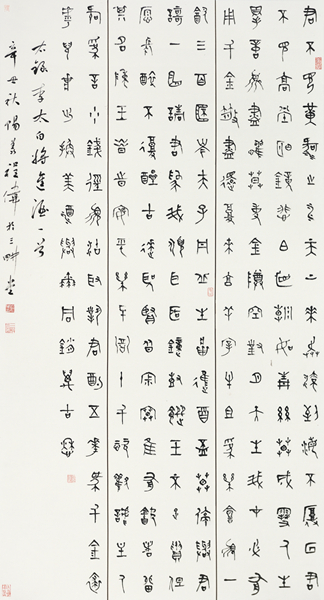 君不見黃河之水天上來奔流到海不復回君
不見高堂明鏡悲白髮朝如青絲暮成雪人生
得意須盡歡莫使金樽空對月天生我材必有
用千金散盡還復來烹羊宰牛且為樂會須一
飲三百杯岑夫子丹丘生將進酒杯莫停與君
歌一曲請君為我傾耳聽鐘鼓饌玉不足貴但
愿長醉不復醒古來聖賢皆寂寞惟有飲者留
其名陳王昔時宴平樂斗酒十千恣歡謔主人
何為言少錢徑須沽取對君酌五花馬千金裘
呼兒將出換美酒與爾同銷萬古愁
右錄李太白將進酒一首
辛丑秋陽羨程偉於三畔堂